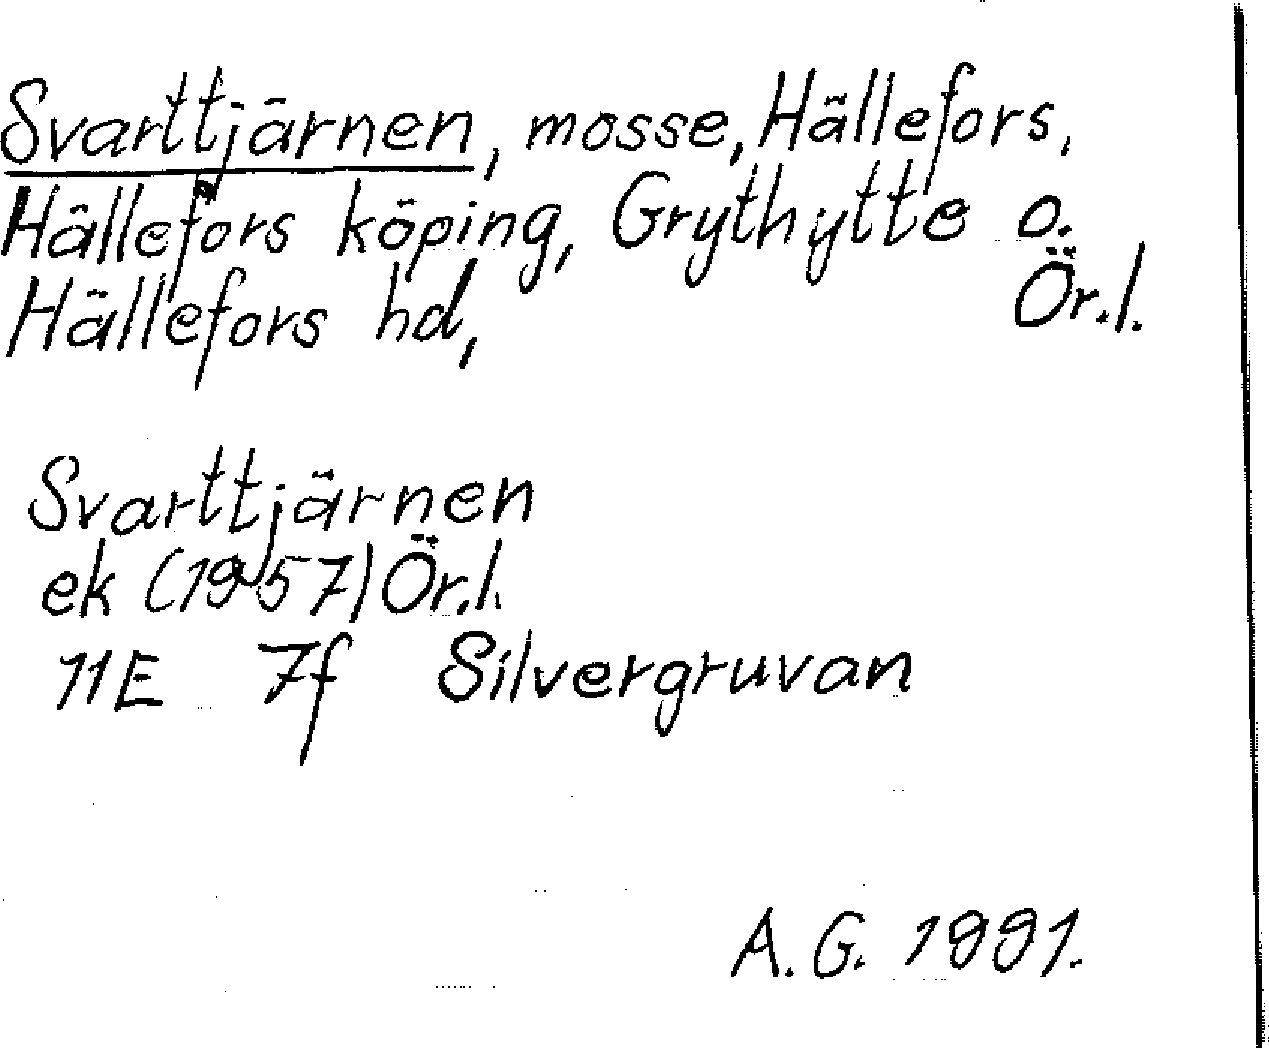 Svarttjärnen, mosse, Hällefors,
Hällefors köping, Grythytte o.
Hällefors hd, Ör.l.
Svarttjärnen
ek (1957) Ör.l.
11E 7f Silvergruvan
A.G. 1991.